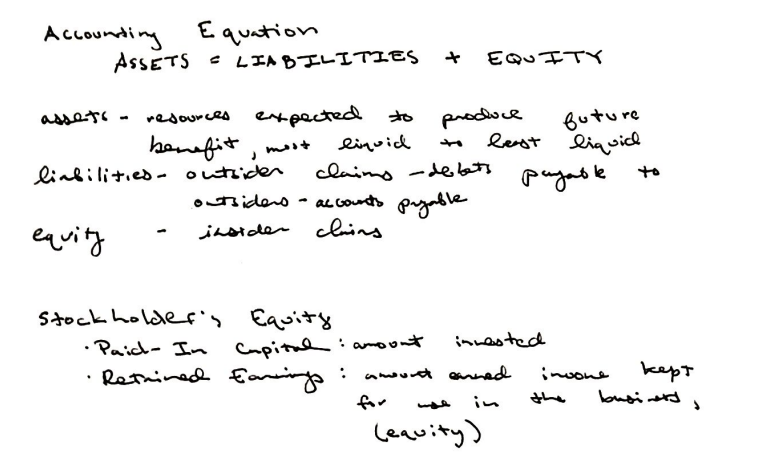 Accounting Equation
ASSETS = LIABILITIES + EQUITY
assets - resources expected to produce future
benefit, most liquid to least liquid
liabilities - outsider claims - debts payable to
outsiders - accounts payable
equity - insider claims
Stockholder's Equity
· Paid-In Capital : amount invested
· Retained Earnings : amount earned income kept
for use in the business,
(equity)